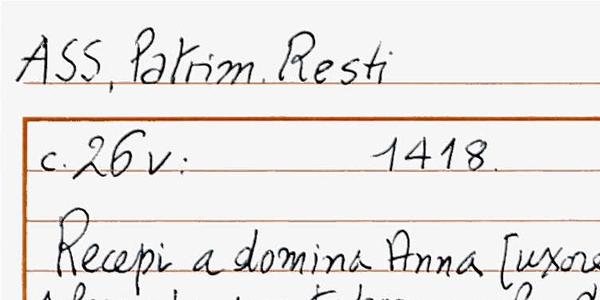 ASS, Patrim. Resti
c. 26 v: 1418.
Recepi a domina Anna [uxore